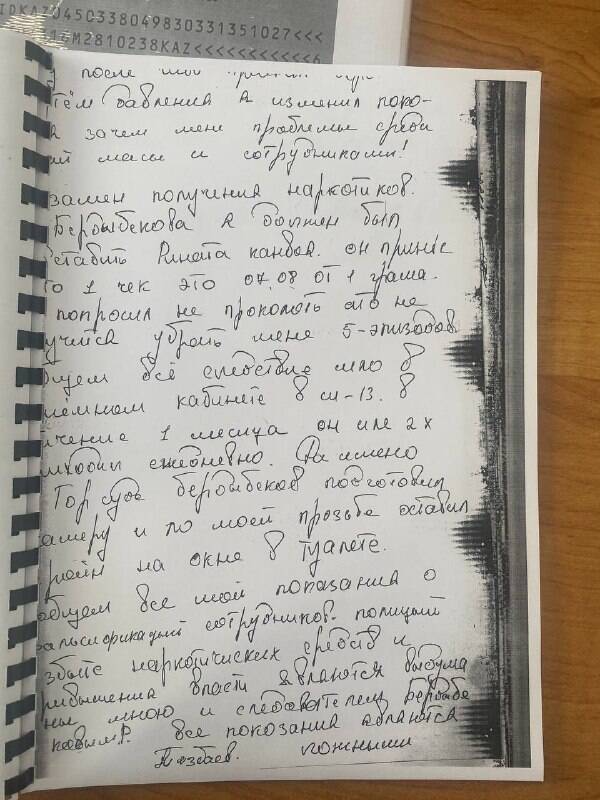 IDKAZ0450338049830331351027<<<
M2810238KAZ<<<<<<<<<<<6
после
тём давления я изменил пока-
а зачем мне проблемы среди
ий масы и сотрудниками!
замен получения наркотиков.
Бердыбекова я должен был
ставить Рината канбоя. он принёс
то 1 чек это 07,08 от 1 грама.
попросил не проколоть это не
учится убрать мене 5-эпизодов
бщем всё следствие шло в
иёмном кабинете в си-13. в
ичение 1 месяца он иле 2х
иходил ежедневно. Да имено
Гор суде бердыбеков подготовил
амеру и по моей прозьбе оставил
роин на окне в туалете.
общем все мои показания о
альсификаций сотрудников. полиций
збыте наркотиских средств и
ривышения власти являются выдума
ные мною и следователем Бердыбе
ковым Р. все показания являются
ложными